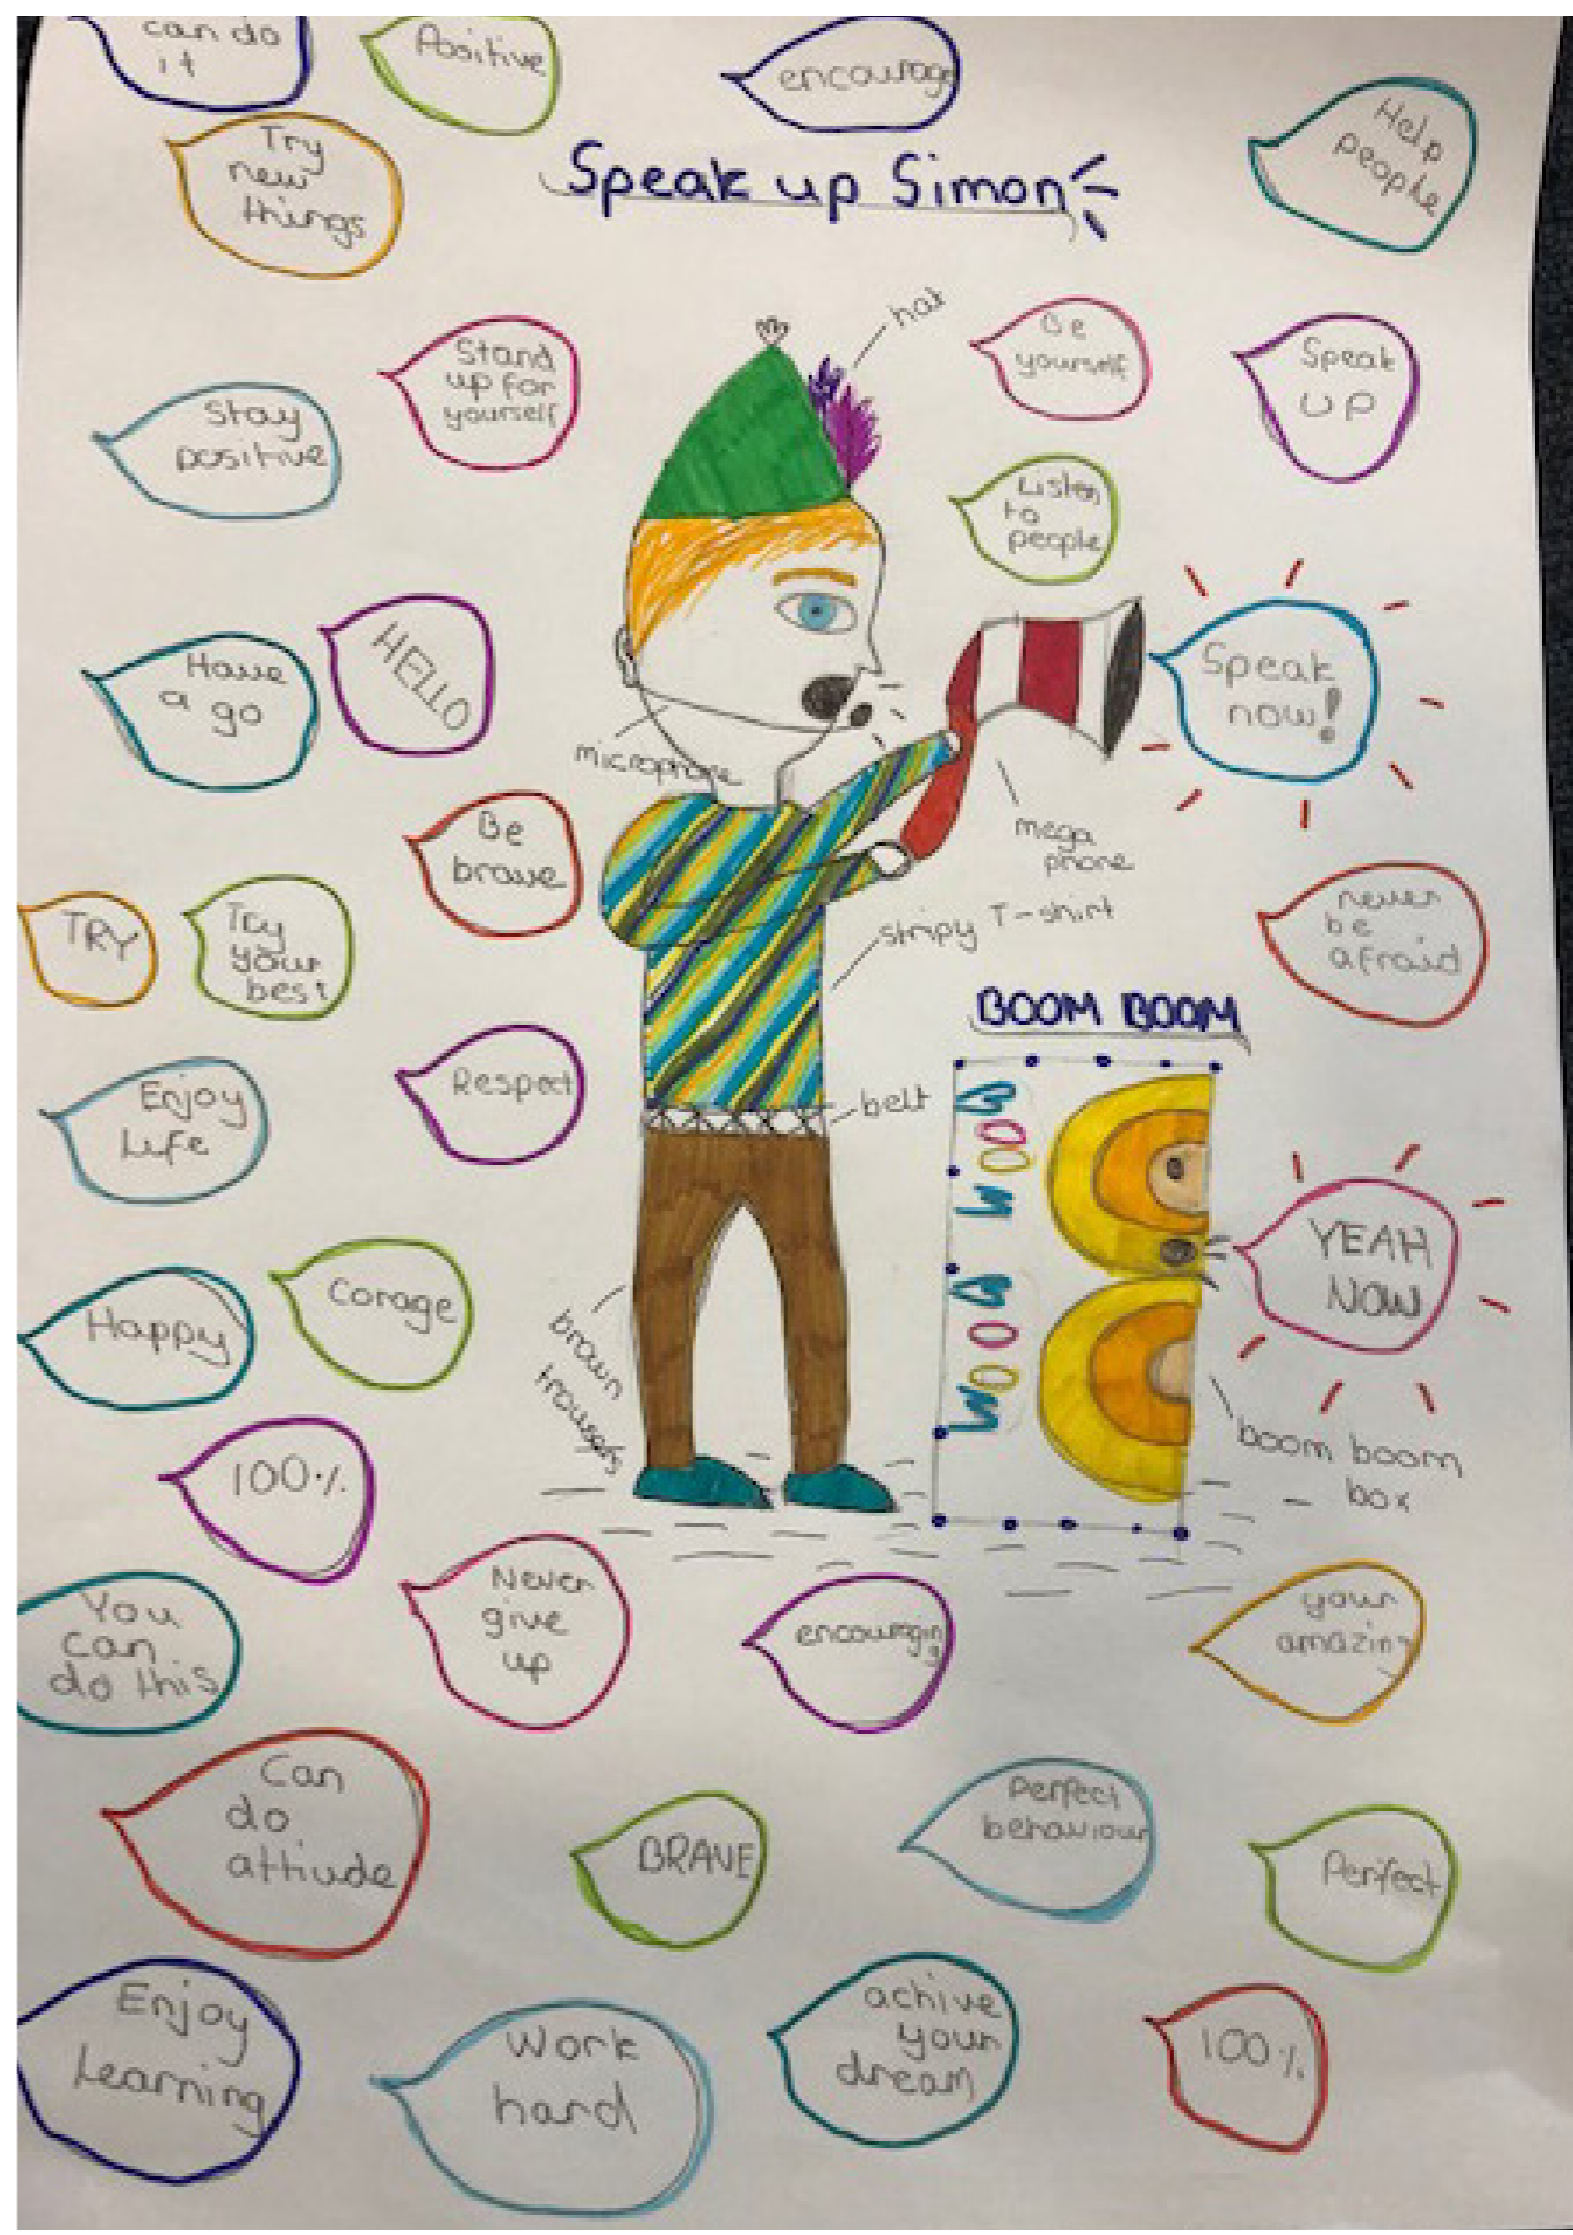 can do
it
Positive
encourage
Help
people
Try
new
things
Speak up Simon
hat
Stand
up for
yourself
Be
yourself
Speak
up
Stay
positive
Listen
to
people
Have
a go
HELLO
Speak
now!
microphone
mega
phone
Be
brave
TRY
Try
your
best
stripy T-shirt
never
be
afraid
BOOM BOOM
Enjoy
Life
Respect
belt
BOOM BOOM
YEAH
NOW
Happy
Corage
brown
trousers
boom boom
box
100%
You
can
do this
Never
give
up
encouraging
your
amazing
Can
do
attiude
BRAVE
Perfect
behaviour
Perfect
Enjoy
Learning
Work
hard
achive
your
dream
100%